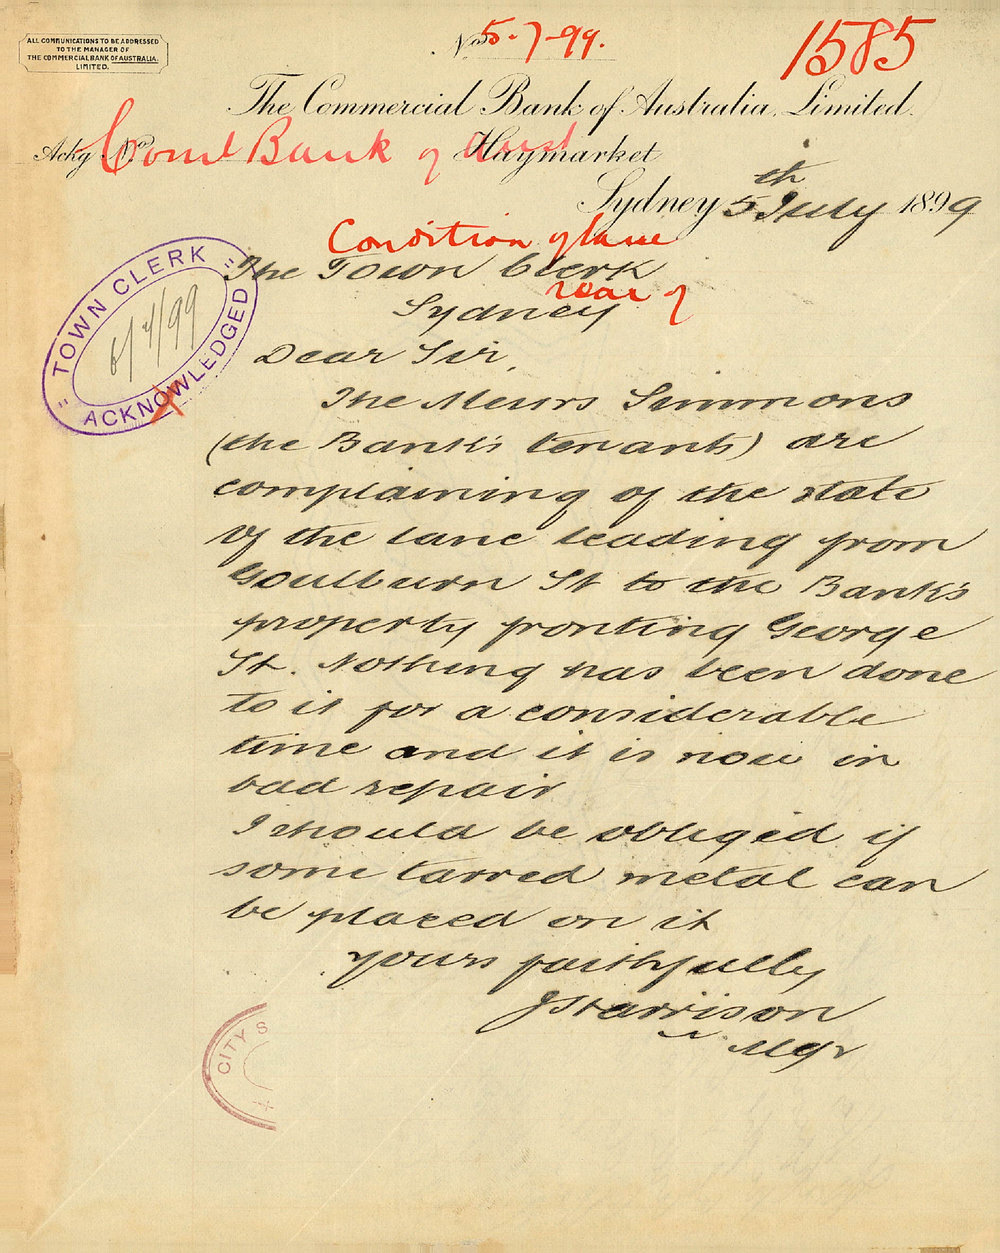 ALL COMMUNICATIONS TO BE ADDRESSED
TO THE MANAGER OF
THE COMMERCIAL BANK OF AUSTRALIA.
LIMITED.
No. 5-7-99.
1585
The Commercial Bank of Australia, Limited.
Ackg No.
Coml Bank of Aust
Haymarket
Sydney 5th July 1899
Condition of lane
rear of
TOWN CLERK
6/7/99
ACKNOWLEDGED
The Town Clerk
Sydney
Dear Sir,
The Messrs Simmons
(the Bank's tenants) are
complaining of the state
of the lane leading from
Goulburn St to the Bank's
property fronting George
St. Nothing has been done
to it for a considerable
time and it is now in
bad repair
I should be obliged if
some tarred metal can
be placed on it
Yours faithfully
J Harrison
Mgr
CITY S